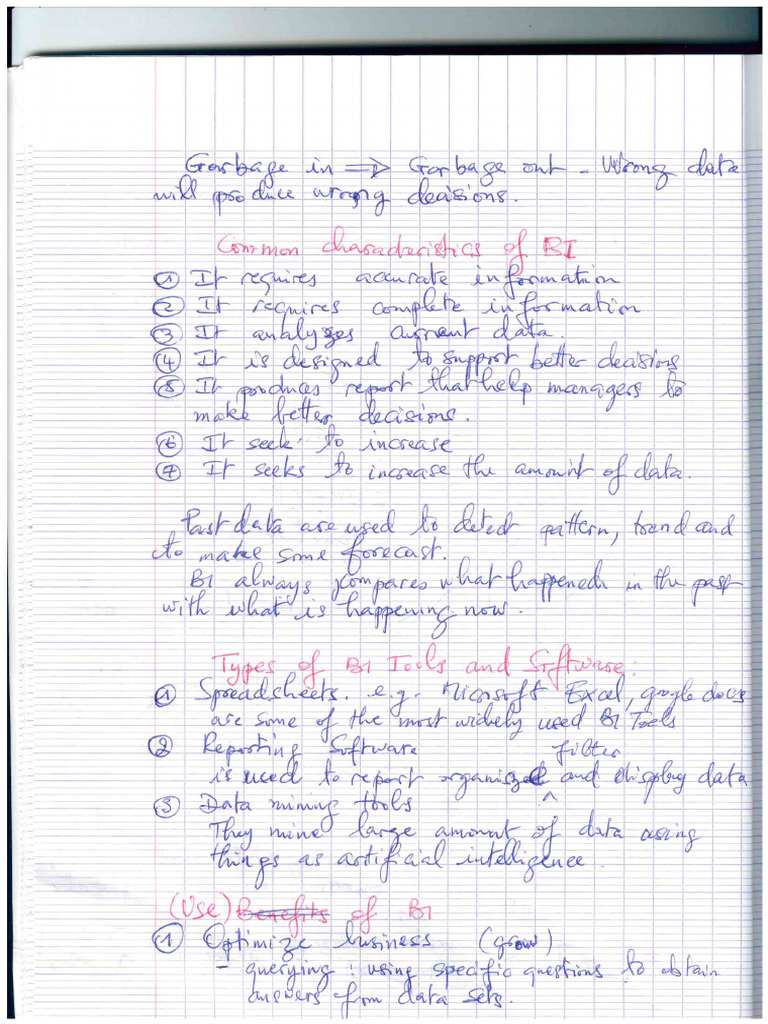 Garbage in => Garbage out - Wrong data
will produce wrong decisions.
Common characteristics of BI
① It requires accurate information
② It requires complete information
③ It analyzes current data.
④ It is designed to support better decisions
⑤ It produces report that help managers to
make better decisions.
⑥ It seek to increase
⑦ It seeks to increase the amount of data.
Past data are used to detect pattern, trend and
to make some forecast.
BI always compares what happened in the past
with what is happening now.
Types of BI Tools and Software:
① Spreadsheets. e.g. Microsoft Excel, google docs
are some of the most widely used BI Tools
② Reporting Software filter
is used to report organize and display data
③ Data mining tools
They mine large amount of data using
things as artificial intelligence.
(Use) Benefits of BI
① Optimize business (grow)
- querying : using specific questions to obtain
answers from data sets.